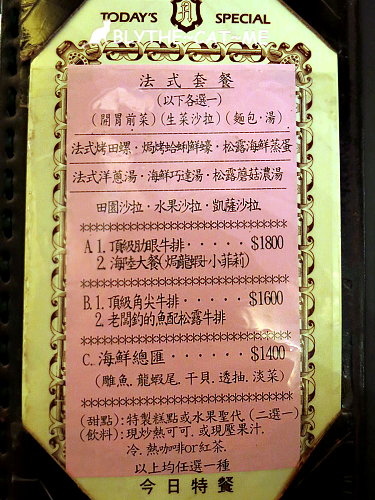 TODAY'S SPECIAL
BLYTHE-CAT-ME
法式套餐
(以下各選一)
(開胃前菜)(生菜沙拉)(麵包·湯)
法式烤田螺·焗烤蛤蜊鮮蠔·松露海鮮蒸蛋
法式洋蔥湯·海鮮巧達湯·松露蘑菇濃湯
田園沙拉·水果沙拉·凱薩沙拉
****************************
A 1. 頂級肋眼牛排·····$1800
2. 海陸大餐(焗龍蝦·小菲莉)
****************************
B.1. 頂級角尖牛排·····$1600
2. 老闆釣的魚配松露牛排
****************************
C. 海鮮總匯·····$1400
(雕魚.龍蝦尾.干貝.透抽.淡菜)
****************************
(甜點):特製糕點或水果聖代.(二選一)
(飲料):現炒熱可可.或現壓果汁.
冷.熱咖啡or紅茶.
以上均任選一種
今日特餐